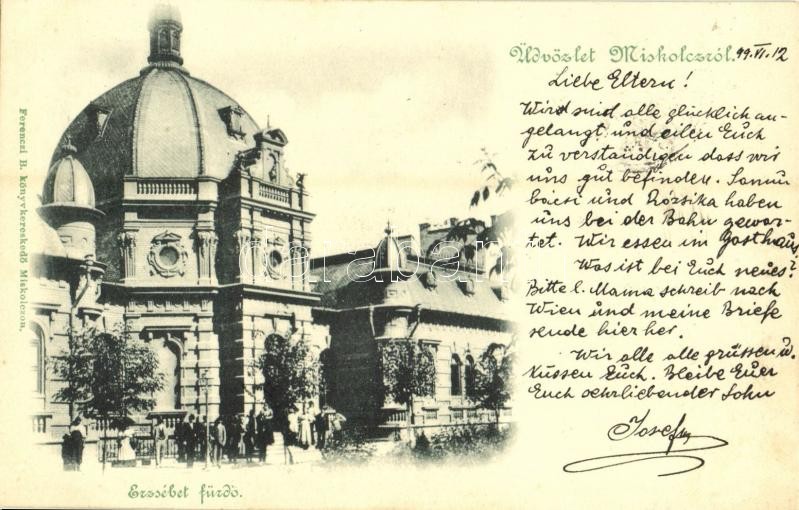 Üdvözlet Miskolczról. 99. VI. 12
Liebe Eltern!
Wir sind alle glücklich an-
gelangt und eilen Euch
zu verständigen dass wir
uns gut befinden. Samu
bácsi und Rózsika haben
uns bei der Bahn gewar-
tet. Wir essen im Gasthaus
Was ist bei Euch neues?
Bitte l. Mama schreib nach
Wien und meine Briefe
sende hierher.
Wir alle alle grüssen u.
küssen Euch. Bleibe Euer
Euch sehrliebender Sohn
Josef
Ferenczi B. könyvkereskedő Miskolczon.
darabanth
Erzsébet fürdő.